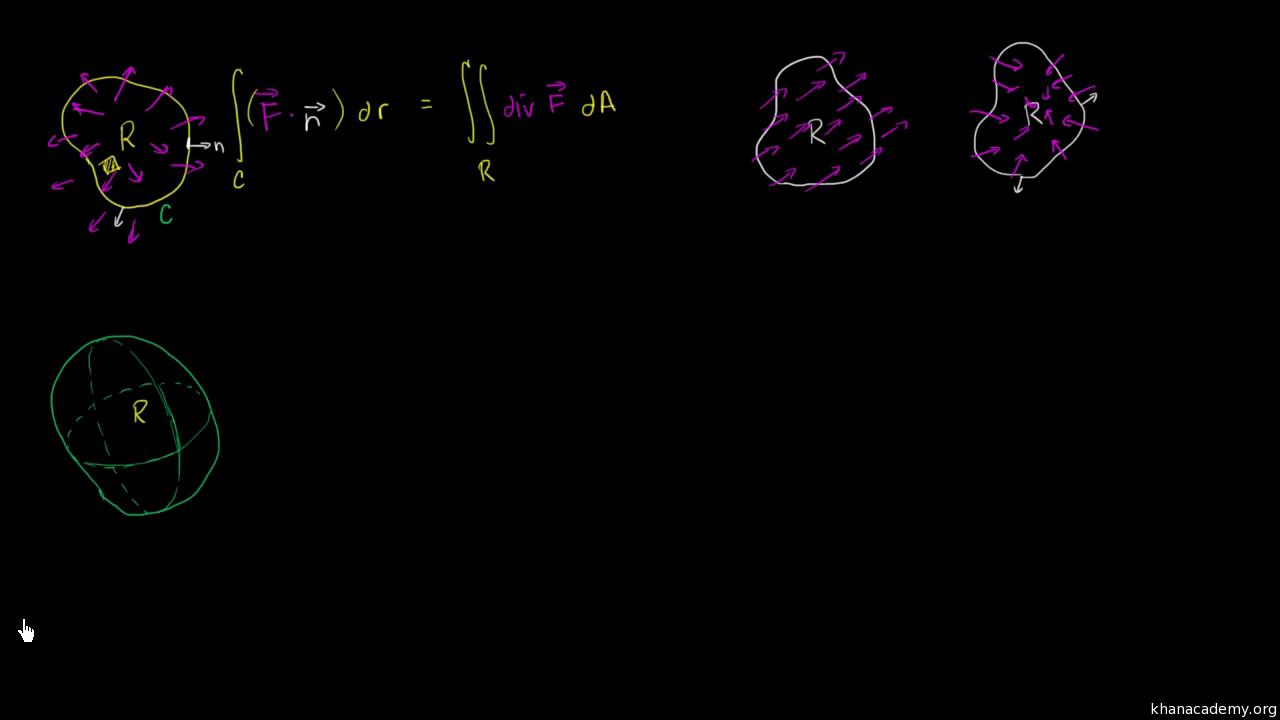 R
n
C
∫_C (F⃗ · n⃗) dr = ∬_R div F⃗ dA
R
R
R
khanacademy.org